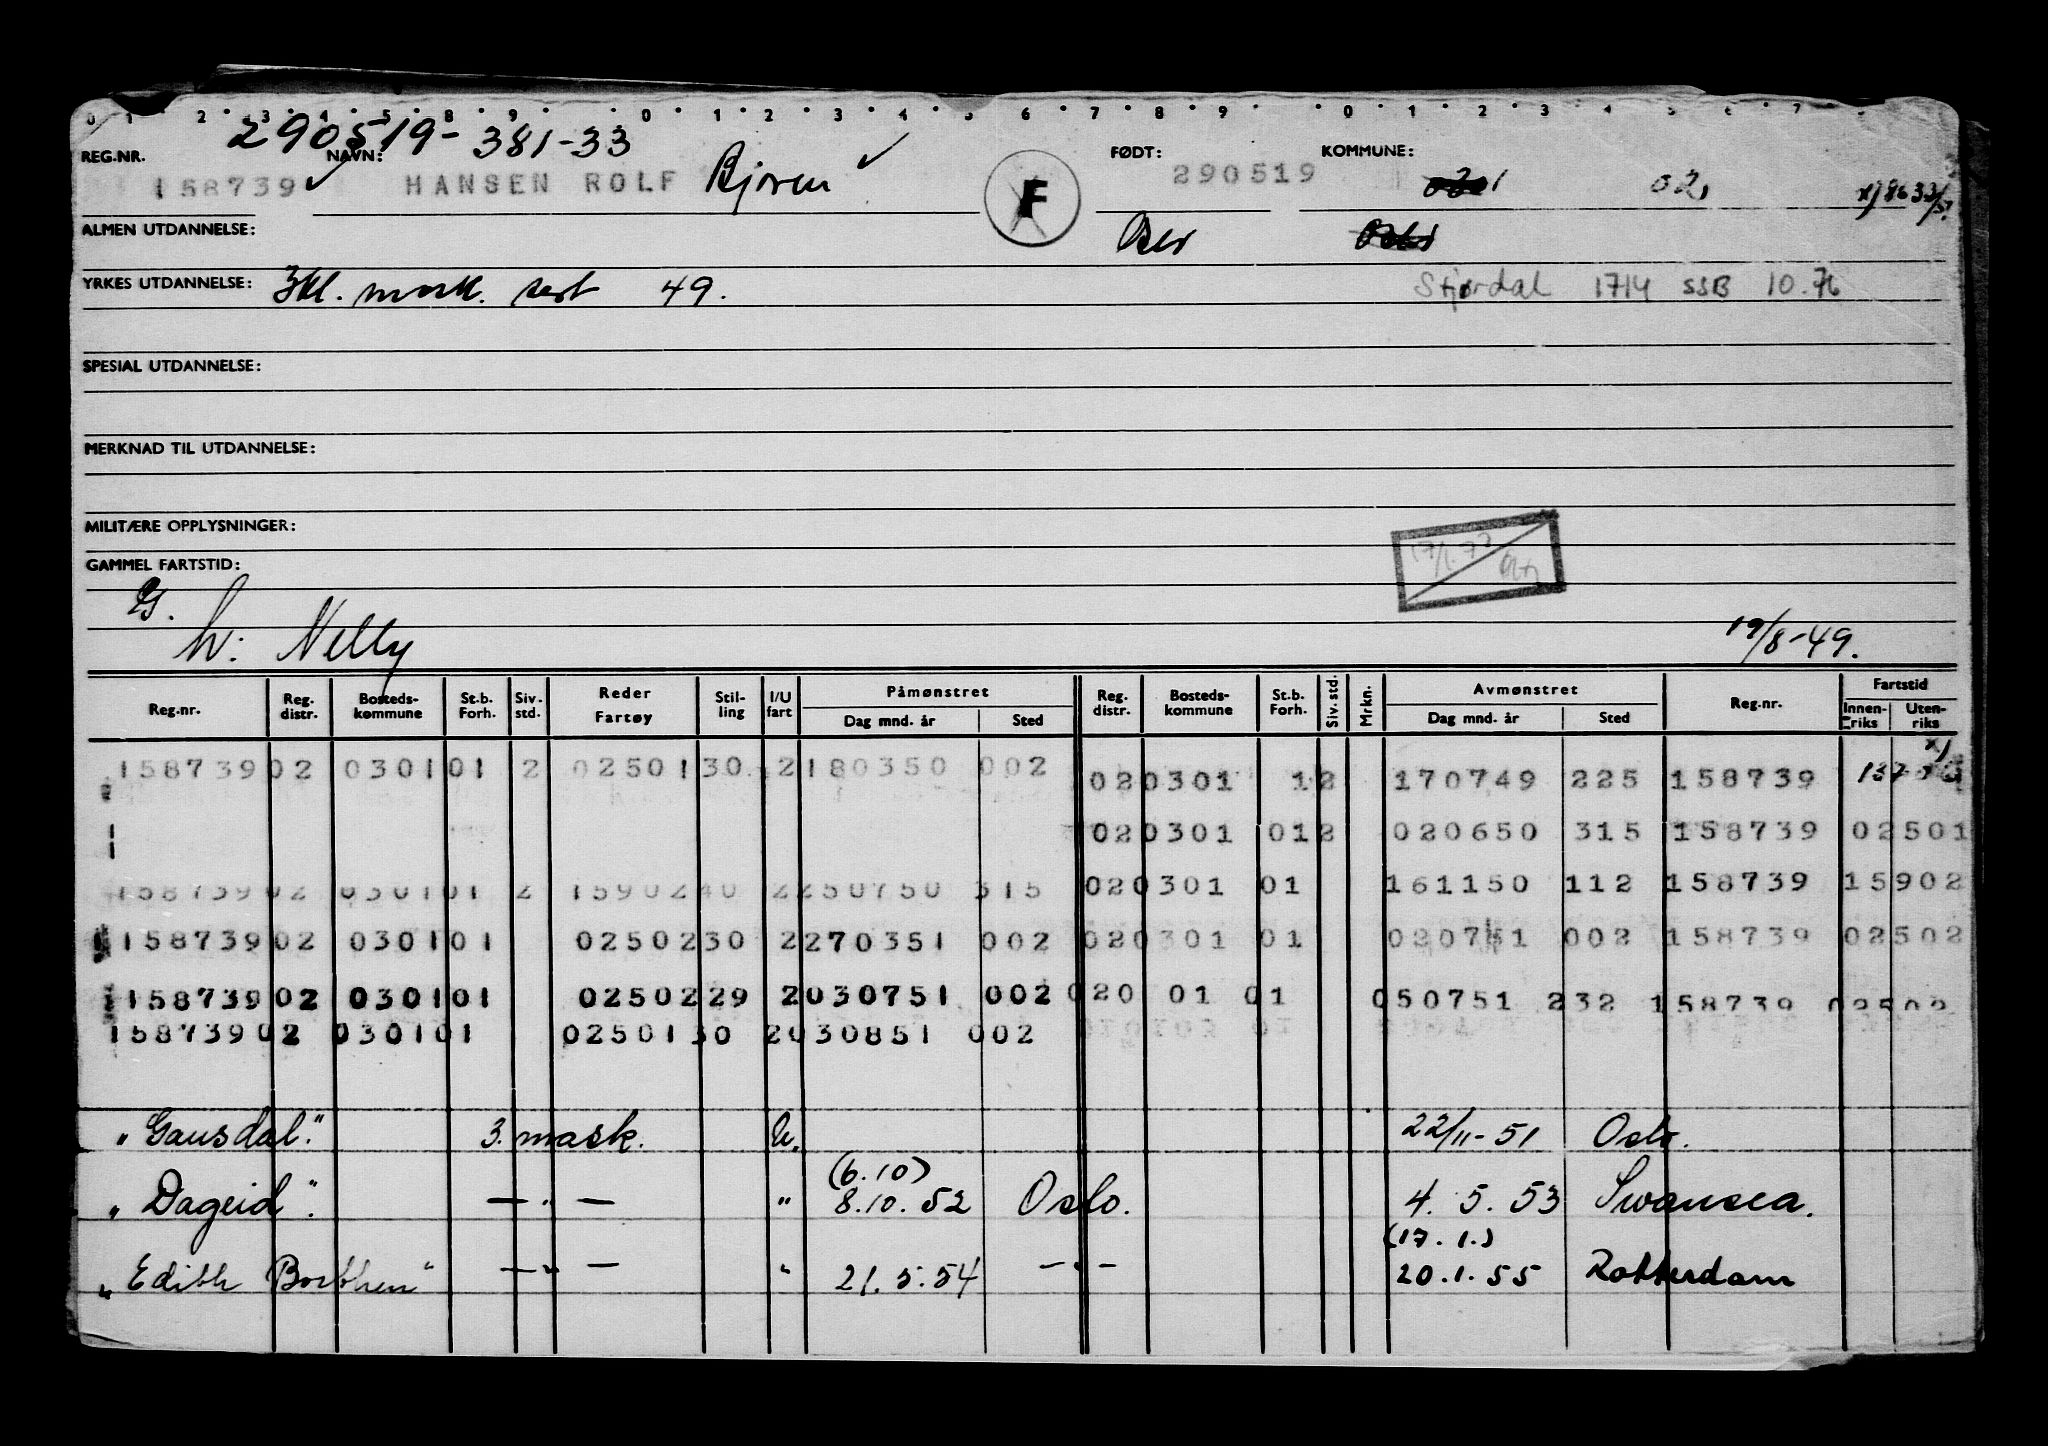 0 1 2 3 4 5 8 9 0 1 2 3 4 5 6 7 8 9 0 1 2 3 4 5 6 7
290519-381-33
REG.NR. NAVN: FØDT: KOMMUNE:
158739 HANSEN ROLF Bjørn F 290519 02
ALMEN UTDANNELSE: Oslo
YRKES UTDANNELSE: 3kl. mask. sert 49. Stjørdal 1714 SSB 10.76
SPESIAL UTDANNELSE:
MERKNAD TIL UTDANNELSE:
MILITÆRE OPPLYSNINGER:
GAMMEL FARTSTID:
Nelly 19/8-49.
Reg.nr. Reg. distr. Bosteds-kommune St.b. Forh. Siv. std. Reder Fartøy Stil-ling I/U fart Påmønstret Dag mnd. år Sted Reg. distr. Bosteds-kommune St.b. Forh. Siv. std. Mrkn. Avmønstret Dag mnd. år Sted Reg.nr. Fartstid Innen-riks Uten-riks
158739 02 0301 01 2 02501 30 2 180350 002 02 0301 1 2 170749 225 158739
02 0301 01 2 020650 315 158739 02501
158739 02 0301 01 2 15902 40 2 250750 315 02 0301 01 161150 112 158739 15902
158739 02 0301 01 02502 30 2 270351 002 02 0301 01 020751 002 158739 02502
158739 02 0301 01 02502 29 2 030751 002 020 01 01 050751 232 158739 02502
158739 02 0301 01 02501 30 2 030851 002
"Gausdal." 3. mask. U. 22/11-51 Oslo.
(6.10)
"Dageid". — " — " 8.10.52 Oslo. 4.5.53 Swansea.
(17.1.)
"Edith Borthen" — " — " 21.5.54 — " — 20.1.55 Rotterdam